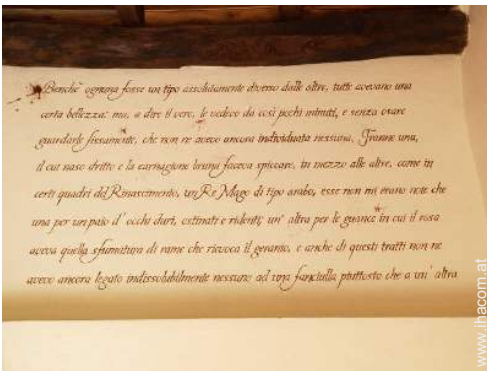 Benchè ognuna fosse un tipo assolutamente diverso dalle altre, tutte avevano una
certa bellezza: ma, a dire il vero, le vedevo da così pochi minuti, e senza osare
guardarle fissamente, che non ne avevo ancora individuata nessuna. Tranne una,
il cui naso dritto e la carnagione bruna faceva spiccare, in mezzo alle altre, come in
certi quadri del Rinascimento, un Re Mago di tipo arabo, esse non mi erano note che
una per un paio d'occhi duri, ostinati e ridenti; un'altra per le guance in cui il rosa
aveva quella sfumatura di rame che rievoca il geranio, e anche di questi tratti non ne
avevo ancora legato indissolubilmente nessuno ad una fanciulla piuttosto che a un'altra
www.ihacom.at